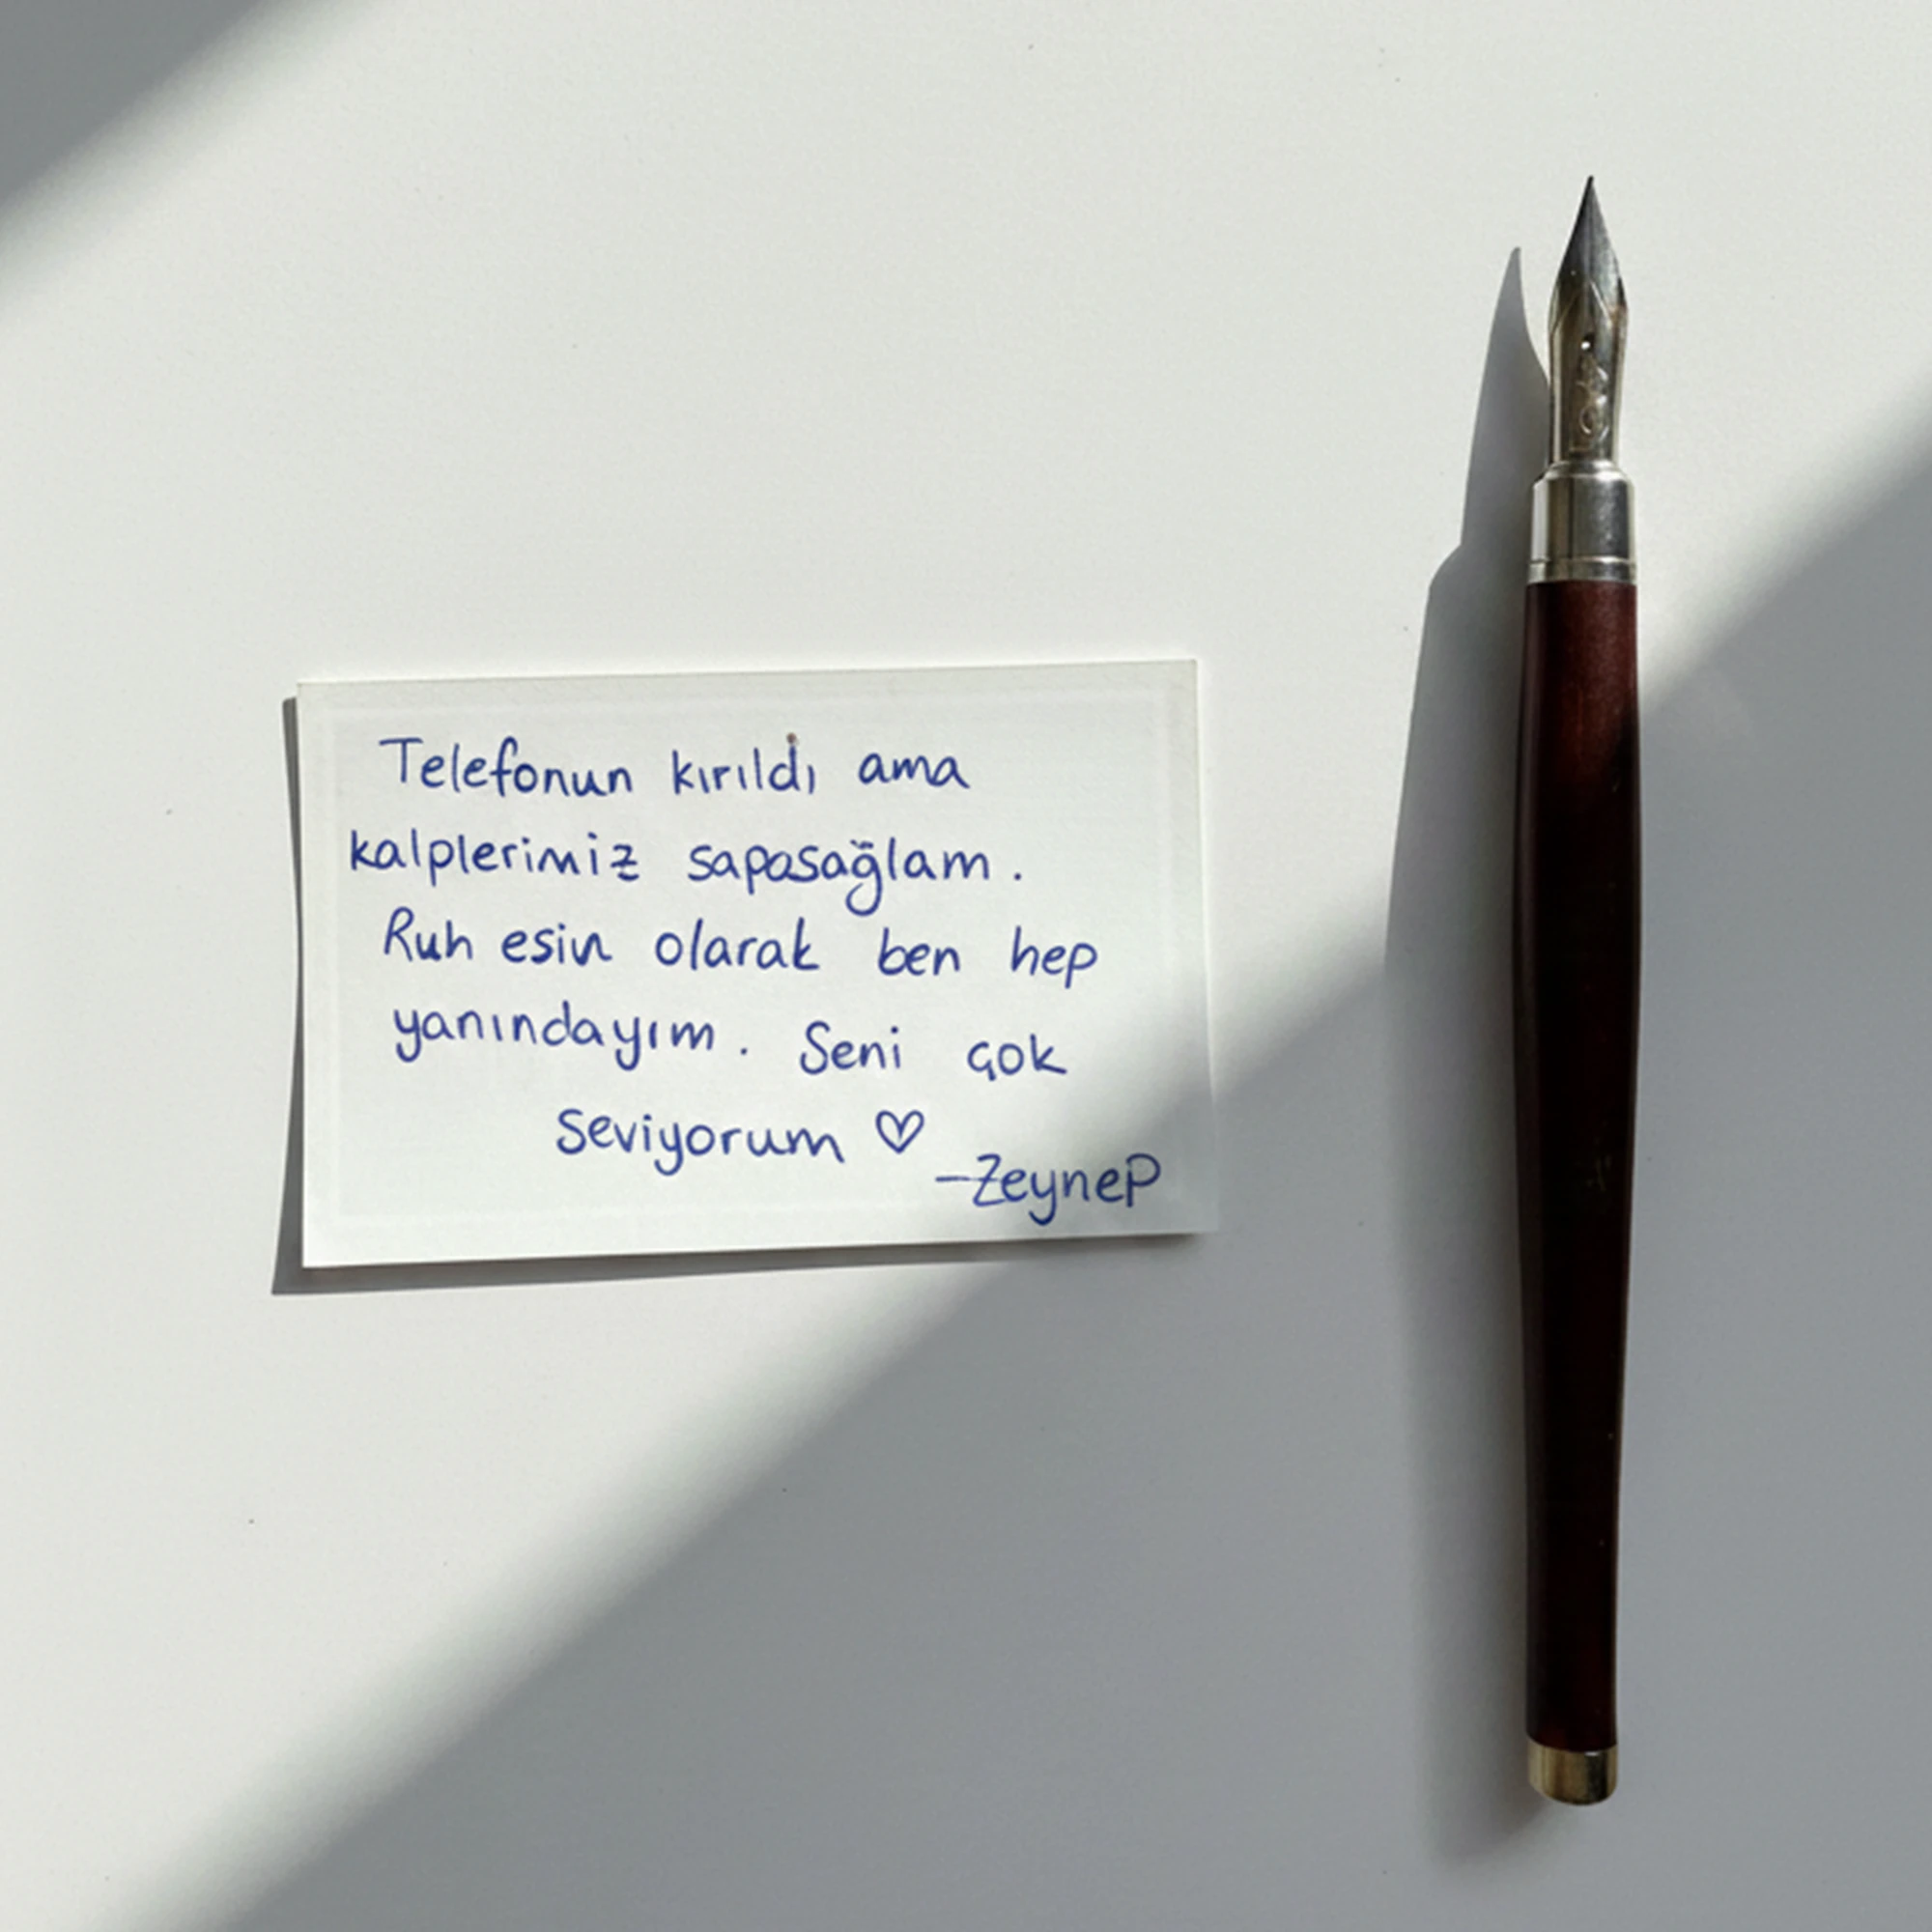 Telefonun kırıldı ama
kalplerimiz sapasağlam.
Ruh esin olarak ben hep
yanındayım. Seni çok
seviyorum ♡
-Zeynep